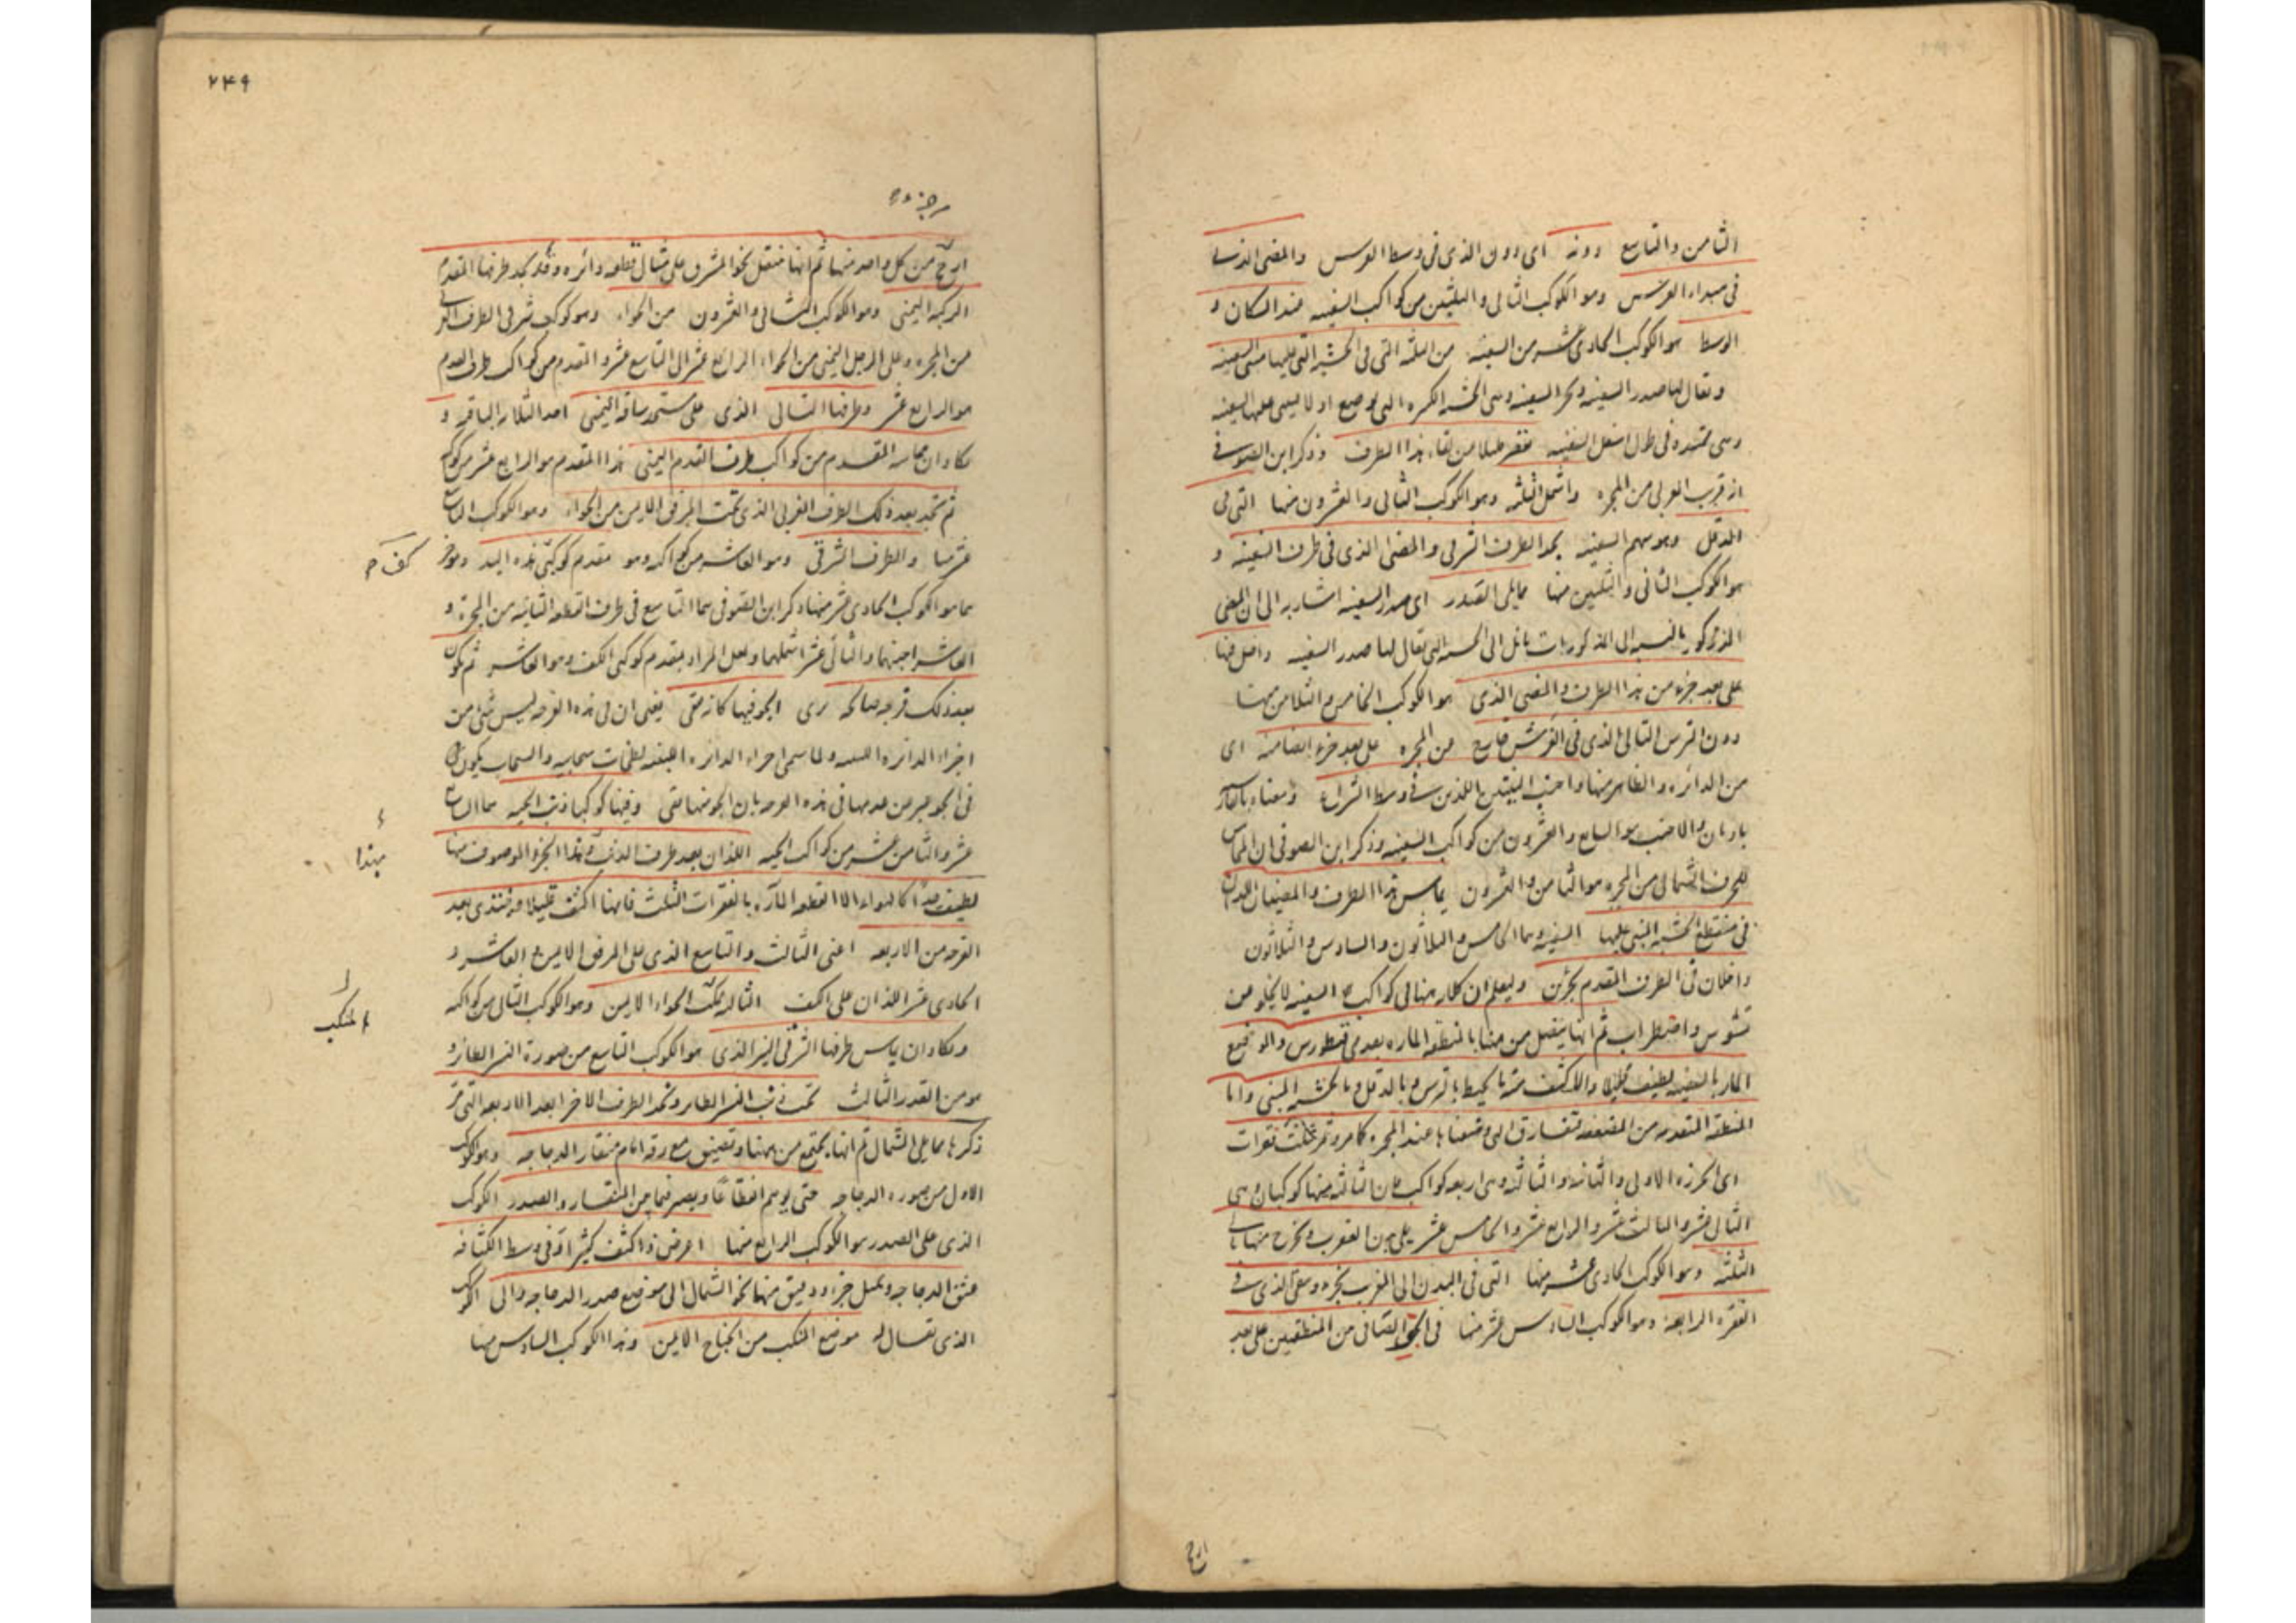 الثامن والتاسع دونه اى دون الذى فى وسط الفرس والمضى الذى
فى مبداء الفرس وهو الكوكب الثانى والثلثين من كواكب السفينه عند السكان و
الوسط هو الكوكب الحادى عشر من السفينه من الثلثه التى فى الخشبه التى عليها مبنى السفينه
ويقال لها صدر السفينه وهى الخشبه الكبيره التى توضع اولا ليبنى عليها السفينه
وهى ممتده فى طول اسفل السفينه هذا الطرف وذكر ابن الصوفى
انه قريب من المجره واشمل الثلثه وهو الكوكب الثانى والعشرون منها التى فى
الدقل وهو سهم السفينه يحد الطرف الشرقى والمضى الذى فى طرف السفينه و
هو الكوكب الثانى والثلثين منها مما يلى الصدر اى صدر السفينه اشار به الى ان المضى
المذكور بالنسبه الى المذكورات مائل الى الخشبه التى يقال لها صدر السفينه داخل فيها
على بعد جزء من هذا الطرف والمضى الذى هو الكوكب الخامس والثلاثون منها
دون الترس التالى الذى فى خارج من المجره على بعد جزء ايضا منه اى
من الدائره والظاهر منها واجنب الاثنين اللذين فى وسط الشراع ومعناه بالفارسيه
بادبان والاجنب هو السابع والعشرون من كواكب السفينه وذكر ابن الصوفى ان المماس
للحرف الشمالى من المجره هو الثامن والعشرون يماس هذا الطرف والمضيئان اللذان
فى منقطع الخشبه المبنى عليها السفينه وهما الخامس والثلاثون والسادس والثلاثون
داخلان فى الطرف المقدم بجزئين وليعلم ان كلامه هنا فى كواكب السفينه لا يخلو من
تشوش واضطراب ثم انها ينفصل من هنا بالمنطقه الماره بعد من قنطورس والموضع
المار بالسفينه لطيف قليلا والاكثف منه ما يحيط بالترس وبالدقل وبالخشبه المبنى واما
المنطقه المتقدمه من المنعطفه تفارق التى وصفناها عند المجره كما مر وتمر بثلث فقرات
اى الخرزه الاولى والثانيه والثالثه وهى اربعه كواكب فان الثالثه فيها كوكبان وهى
الثانى عشر والثالث عشر والرابع عشر والخامس عشر على بدن العقرب ويخرج منها تالى
الثلثه وهو الكوكب الحادى عشر منها التى فى البدن الى المغرب بجزء ويبقى الذى فى
الفقره الرابعه وهو الكوكب السادس عشر منها فى الجو الصافى من المنطقتين على بعد
ارجح
٢٤٩
جزء
ارجح من كل واحد منها ثم انها تنتقل نحو المشرق على مثال قطعه دائره وقد يحد طرفها المتقدم
الركبه اليمنى وهو الكوكب الثانى والعشرون من الحواء وهو كوكب شرقى الطرف
من المجره وعلى الرجل اليمنى من الحواء الرابع عشر الى التاسع عشر والمتقدم من كواكب طرف القدم
هو الرابع عشر وطرفها التالى الذى على ساقه اليمنى احد الثلاثه الباقيه و
يكاد ان يماسه المتقدم من كواكب طرف القدم اليمنى هذا المتقدم هو الرابع عشر من كواكبه
ثم يحد بعد ذلك الطرف الغربى الذى تحت المرفق الايمن من الحواء وهو الكوكب التاسع
عشر منها والطرف الشرقى وهو العاشر من كواكبه وهو مقدم كوكبى هذه اليد ومؤخر
كف
هما هو الكوكب الحادى عشر منها وذكر ابن الصوفى هما التاسع فى طرف القطعه الثانيه من المجره و
العاشر اجنبهما والثانى عشر اشملهما ولعل المراد بمقدم كوكبى الكف هو العاشر ثم يكون
بعد ذلك فرجه صالحه يرى الجو فيها كانه نقى يعنى ان فى هذه الفرجه ليس شئ من
اجزاء الدائره اللبنيه ولما سمى اجزاء الدائره اللبنيه سحابيه والسحاب يكون
فى الجو عبر عن عدمها فى هذه الفرجه بان الجو منها نقى وفيها كوكبا ذنب الحيه هما السابع
عشر والثامن عشر من كواكب الحيه اللذان بعد طرف الذنب وهذا الجزء الموصوف منها
مبتدا
لطيف جدا كالهواء الا القطعه الماره بالفقرات الثلث فانها اكثف قليلا ثم تبتدى بعد
الفرجه من الاربعه اعنى الثالث والتاسع الذى على المرفق الايمن والعاشر و
الحادى عشر اللذان على الكف التاليه لمنكب الحواء الايمن وهو الكوكب الثانى من كواكبه
المنكب
ويكاد ان يماس طرفها الشرقى النير الذى هو الكوكب التاسع من صورة النسر الطائر و
هو من القدر الثالث تحت ذنب النسر الطائر ويحد الطرف الاخر ابعد الاربعه التى مر
ذكرها مما يلى الشمال ثم انها تجتمع من ههنا وتضيق مع رقه امام منقار الدجاجه وهو الكوكب
الاول من صوره الدجاجه حتى يوهم انقطاعا ويصير فيما بين المنقار والصدر الكوكب
الذى على الصدر هو الكوكب الرابع منها اعرض واكثف كثيرا وفى وسط الكثافه
عنق الدجاجه ويميل جزء دقيق منها نحو الشمال الى موضع صدر الدجاجه والى الكوكب
الذى يقال له موضع المنكب من الجناح الايمن وهذا الكوكب السادس منها